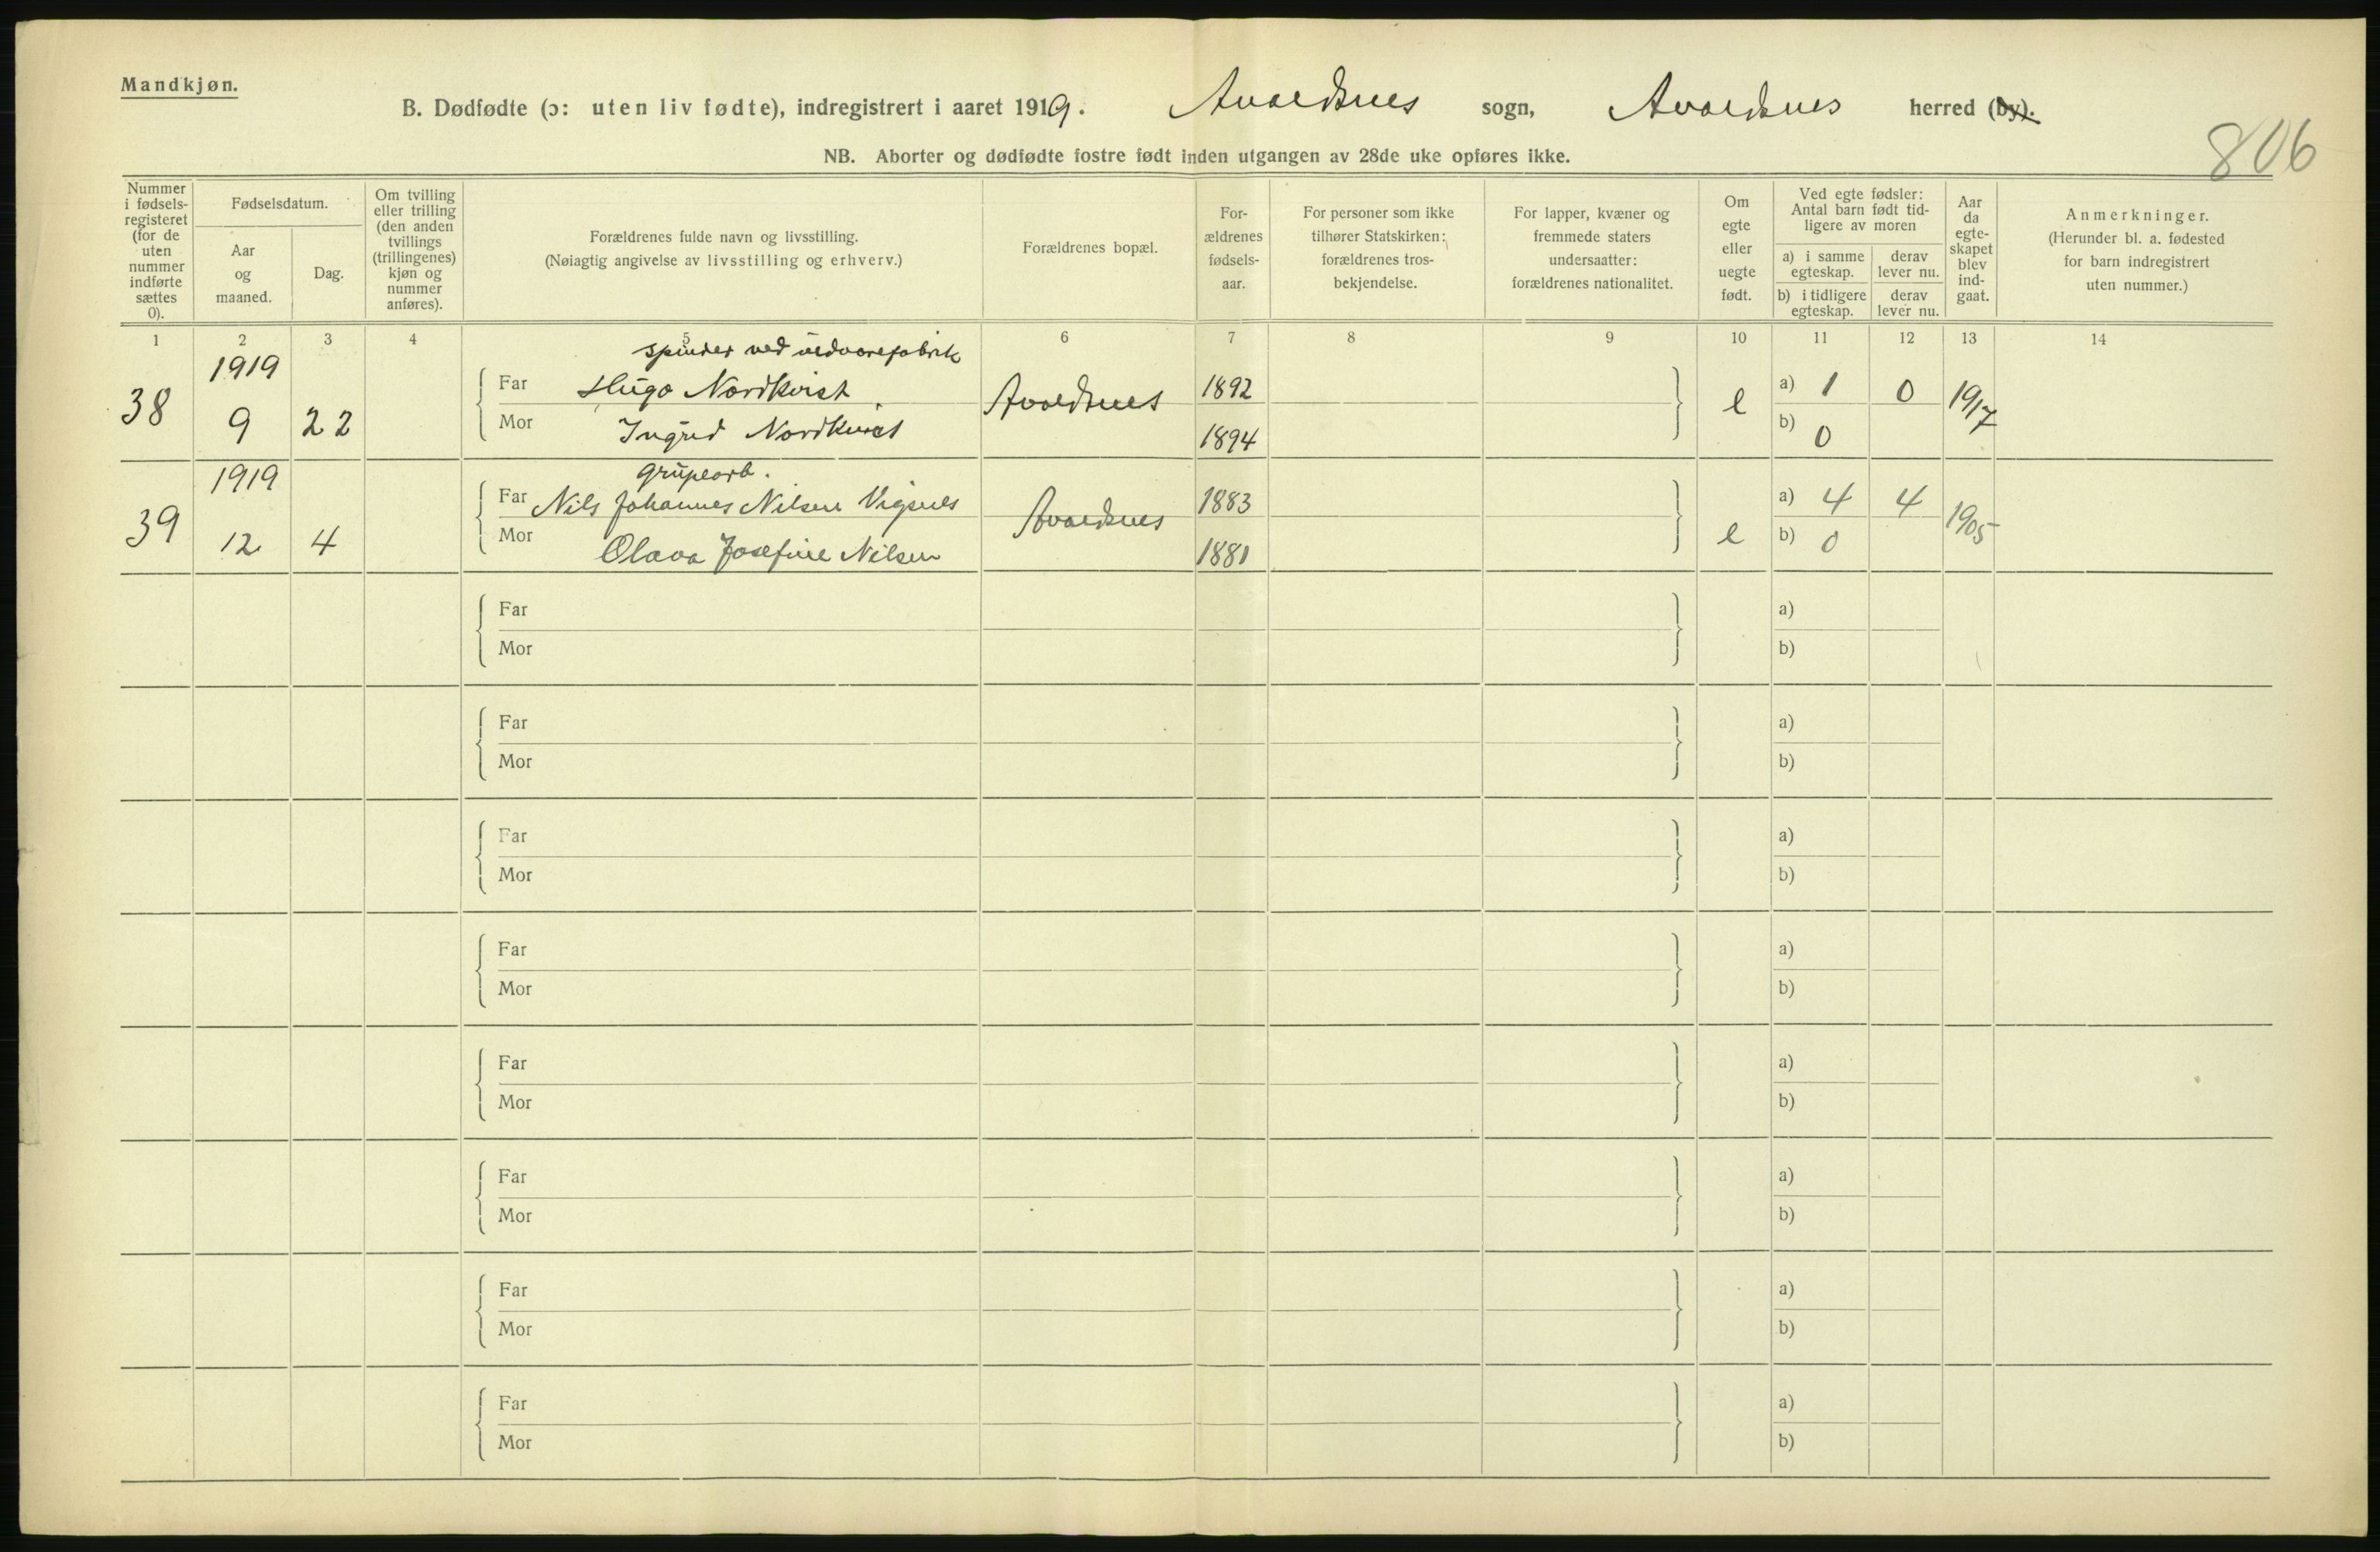 Mandkjøn.
B. Dødfødte (ɔ: uten liv fødte), indregistrert i aaret 1919. Avaldsnes sogn, Avaldsnes herred (by).
806
NB. Aborter og dødfødte fostre født inden utgangen av 28de uke opføres ikke.
Nummer
i fødsels-
registeret
(for de
uten
nummer
indførte
sættes
0).
Fødselsdatum.
Aar
og
maaned.
Dag.
Om tvilling
eller trilling
(den anden
tvillings
(trillingenes)
kjøn og
nummer
anføres).
Forældrenes fulde navn og livsstilling.
(Nøiagtig angivelse av livsstilling og erhverv.)
Forældrenes bopæl.
For-
ældrenes
fødsels-
aar.
For personer som ikke
tilhører Statskirken:
forældrenes tros-
bekjendelse.
For lapper, kvæner og
fremmede staters
undersaatter:
forældrenes nationalitet.
Om
egte
eller
uegte
født.
Ved egte fødsler:
Antal barn født tid-
ligere av moren
a) i samme
egteskap.
derav
lever nu.
b) i tidligere
egteskap.
derav
lever nu.
Aar
da
egte-
skapet
blev
ind-
gaat.
Anmerkninger.
(Herunder bl. a. fødested
for barn indregistrert
uten nummer.)
1 2 3 4 5 6 7 8 9 10 11 12 13 14
spinder ved uldvarefabrik
1919
38 9 22
Far Hugo Nordkvist Avaldsnes 1892 e a) 1 0 1917
Mor Ingrid Nordkvist 1894 b) 0
1919 grupearb.
39 12 4
Far Nils Johannes Nilsen Vigsnes Avaldsnes 1883 e a) 4 4 1905
Mor Olava Josefine Nilsen 1881 b) 0
Far a)
Mor b)
Far a)
Mor b)
Far a)
Mor b)
Far a)
Mor b)
Far a)
Mor b)
Far a)
Mor b)
Far a)
Mor b)
Far a)
Mor b)